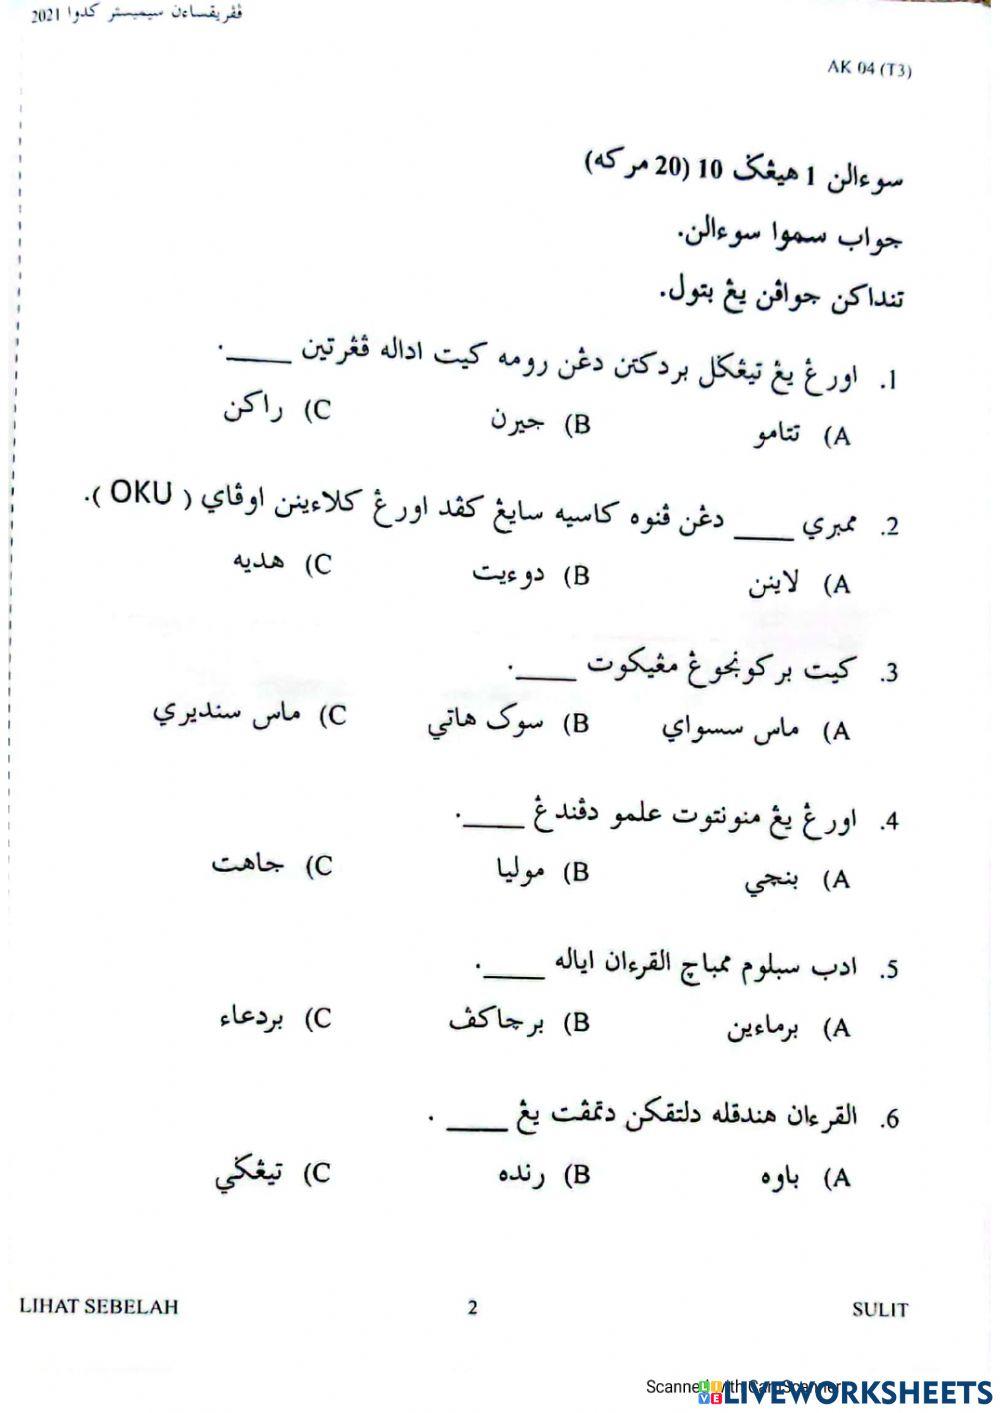 ڤڤريقساءن سيميستر كدوا 2021
AK 04 (T3)
سوءالن 1 هيڠݢ 10 (20 مركه)
جواب سموا سوءالن.
تنداكن جواڤن يڠ بتول.
1. اورڠ يڠ تيڠݢل بردكتن دڠن رومه كيت اداله ڤڠرتين ____.
A) تتامو B) جيرن C) راكن
2. ممبري ____ دڠن ڤنوه كاسيه سايڠ كڤد اورڠ كلاءينن اوڤاي ( OKU ).
A) لاينن B) دوءيت C) هديه
3. كيت بركونجوڠ مڠيكوت ____.
A) ماس سسواي B) سوک هاتي C) ماس سنديري
4. اورڠ يڠ منونتوت علمو دڤندڠ ____.
A) بنچي B) موليا C) جاهت
5. ادب سبلوم ممباچ القرءان اياله ____.
A) برماءين B) برچاكڤ C) بردعاء
6. القرءان هندقله دلتقكن دتمڤت يڠ ____ .
A) باوه B) رنده C) تيڠݢي
LIHAT SEBELAH
2
SULIT
Scanned with CamScanner
LIVEWORKSHEETS